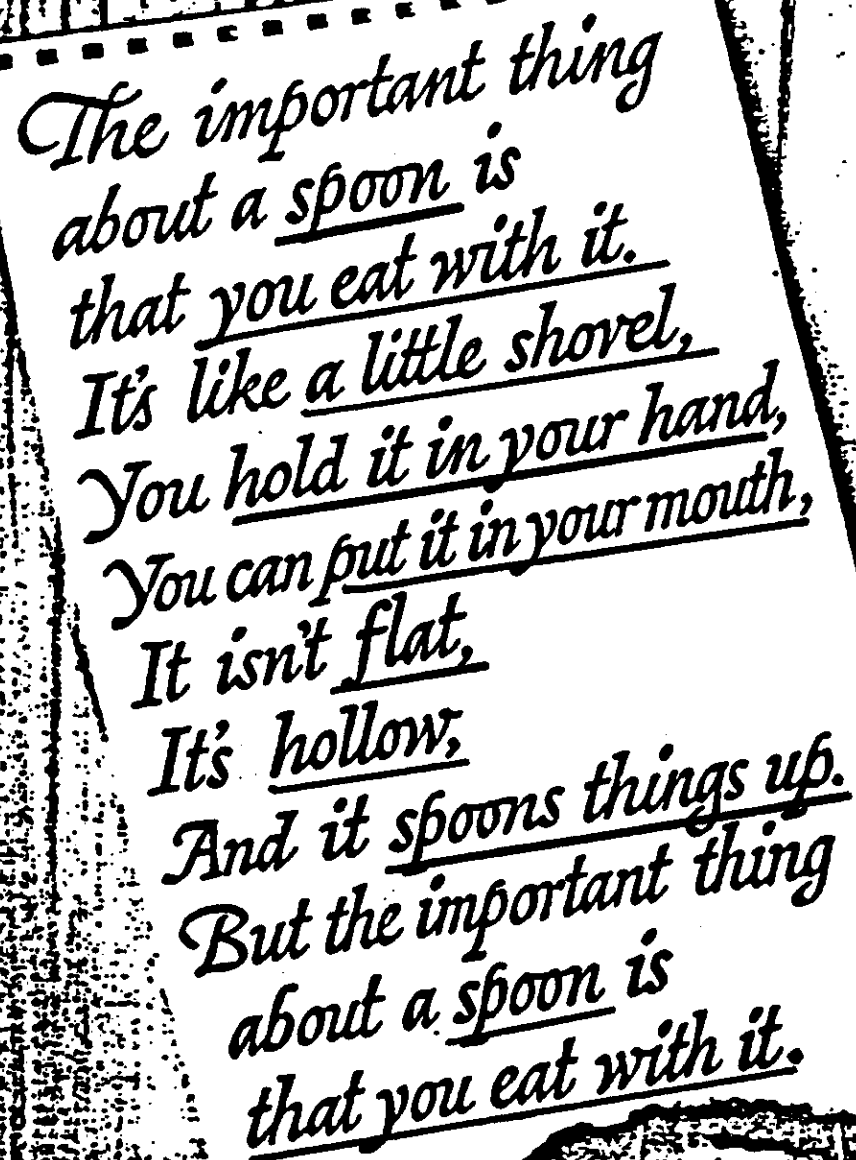 The important thing
about a spoon is
that you eat with it.
It's like a little shovel,
You hold it in your hand,
You can put it in your mouth,
It isn't flat,
It's hollow,
And it spoons things up.
But the important thing
about a spoon is
that you eat with it.